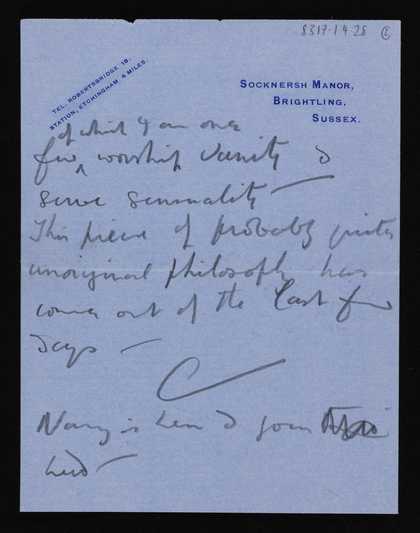 8317.1.4.28
TEL. ROBERTSBRIDGE 18.
STATION, ETCHINGHAM 4 MILES.
SOCKNERSH MANOR,
BRIGHTLING,
SUSSEX.
of which I am one
few worship vanity &
serve sensuality —
This piece of probably quite
unoriginal philosophy has
come out of the last few
days —
C
Nancy is here &